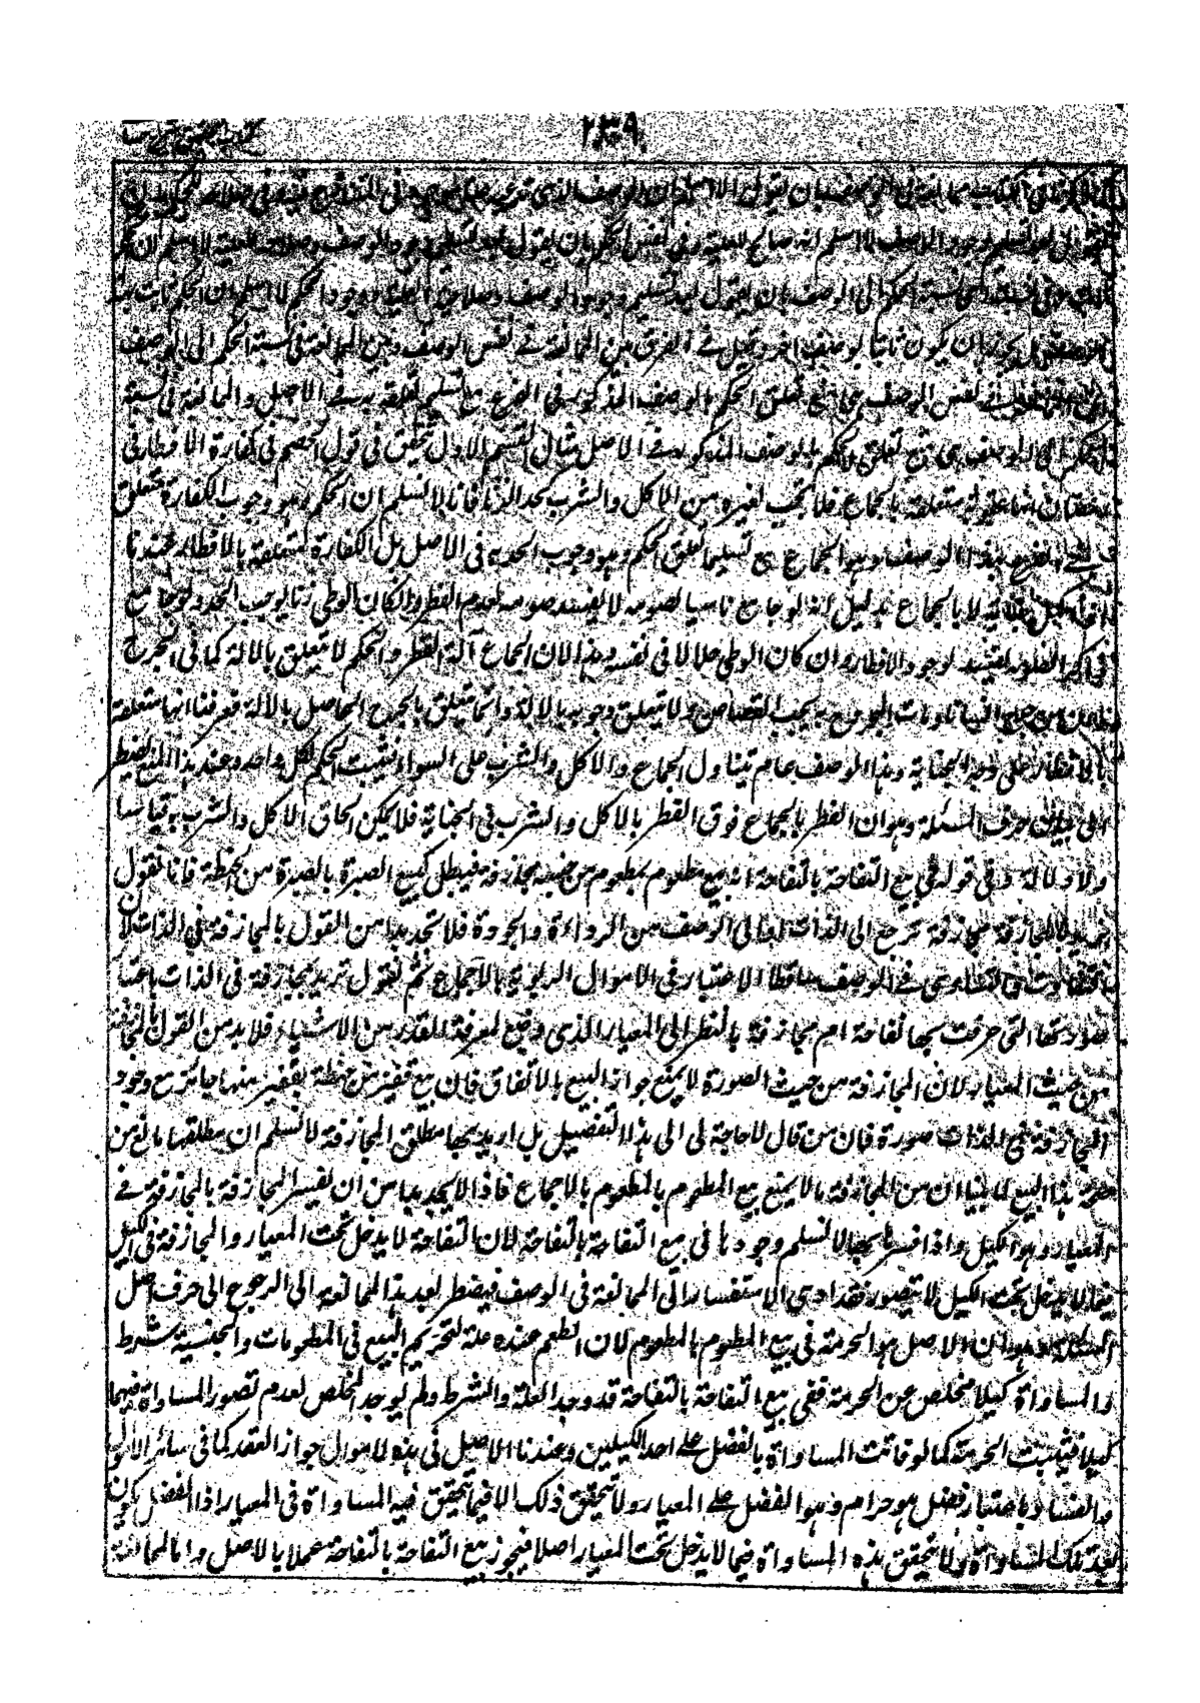 ٢٣٩
لا نسلم انه صالح للعلية وفي نفس الحكم بان يقول بعد تسليم وجود الوصف وصلاحه للعلية لا نسلم ان
نسبة الحكم الى الوصف بان يقول بعد تسليم وجود الوصف وصلاحية العلية ووجود الحكم لا نسلم ان الحكم ثابت
ان يكون ثابتا بوصف اخر وقيل في الفرق بين الممانعة في نفس الوصف وبين الممانعة في نسبة الحكم الى الوصف
نفس الوصف هي منع تعلق الحكم بالوصف المذكور في الفرع مع تسليم تعلقه به في الاصل والممانعة في نسبة
الحكم الى الوصف هي منع تعلق الحكم بالوصف المذكور في الاصل مثال القسم الاول تحقق في قول الخصم في كفارة الافطار في
متعلقة بالجماع فلا تجب لغيره من الاكل والشرب كحد الزنا فانا لا نسلم ان الحكم وهو وجوب الكفارة متعلق
في الفرع بهذا الوصف وهو الجماع مع تسليم تعلق الحكم وهو وجوب الحد به في الاصل بل الكفارة متعلقة بالافطار عندنا
لا بالجماع بدليل انه لو جامع ناسيا لصومه لا يفسد صومه لعدم الفطر وان كان الوطي زنا يوجب الحد ولو جامع
يفسد لوجود الافطار وان كان الوطي حلالا في نفسه وهذا لان الجماع آلة الفطر والحكم لا يتعلق بالالة كما في الجرح
مات المجروح به يجب القصاص ولا يتعلق وجوبه بالالة وانما يتعلق بالجرح الحاصل بالالة فعرفنا انها متعلقة
بالافطار على وجه الجناية وهذا الوصف عام يتناول الجماع والاكل والشرب على السواء فيثبت الحكم لكل واحد وعند هذا المنع يضطر
الى بيان حرف المسئلة وهو ان الفطر بالجماع فوق الفطر بالاكل والشرب في الجناية فلا يمكن الحاق الاكل والشرب به قياسا
ولا دلالة وفي قوله في بيع التفاحة بالتفاحة انه بيع مطعوم بمطعوم من جنسه مجازفة فيبطل كبيع الصبرة بالصبرة من الحنطة فانا نقول
مجازفة ترجع الى الذات او الى الوصف من الرداءة والجودة فلا تجد بدا من القول بالمجازفة في الذات لان
التفاوت والتساوي في الوصف ساقط الاعتبار في الاموال الربوية بالاجماع ثم نقول تريد مجازفة في الذات باعتبار
صورتها التي عرفت بها تفاحة ام مجازفة بالنظر الى المعيار الذي وضع لمعرفة القدر من الاشياء فلا بد من القول بالمجازفة
من حيث المعيار لان المجازفة من حيث الصورة لا يمنع جواز البيع بالاتفاق فان بيع قفيز من حنطة بقفيز منها جائز مع وجود
المجازفة في الذات صورة فان من قال لا حاجة لي الى هذا التفصيل بل اريد بها مطلق المجازفة لا نسلم ان مطلقها مانع من
صحة هذا البيع لما بينا ان من المجازفة ما لا يمنع بيع المطعوم بالمطعوم بالاجماع فاذا لا يجد بدا من ان يفسر المجازفة بالمجازفة في
المعيار وهو الكيل واذا فسر بها لا نسلم وجودها في بيع التفاحة بالتفاحة لان التفاحة لا يدخل تحت المعيار والمجازفة في الكيل
فيما لا يدخل تحت الكيل لا يتصور فقد ادى الاستفسار الى الممانعة في الوصف فيضطر بعد هذا الممانعة الى الرجوع الى حرف اصل
المسئلة وهو ان الاصل هو الحرمة في بيع المطعوم بالمطعوم لان الطعم عنده علة لتحريم البيع في المطعومات والجنسية شرط
والمساواة كيلا مخلص عن الحرمة ففي بيع التفاحة بالتفاحة قد وجد العلة والشرط ولم يوجد المخلص لعدم تصور المساواة فيهما
كيلا فيثبت الحرمة كما لو فاتت المساواة بالفضل على احد الكيلين وعندنا الاصل في هذه الاموال جواز العقد كما في سائر الاموال
والفساد باعتبار فضل هو حرام وهو الفضل على المعيار ولا يتحقق ذلك الا فيما يتحقق فيه المساواة في المعيار اذ الفضل يكون
بعد تلك المساواة ولا يتحقق هذه المساواة فيما لا يدخل تحت المعيار اصلا فيجوز بيع التفاحة بالتفاحة عملا بالاصل واما الممانعة